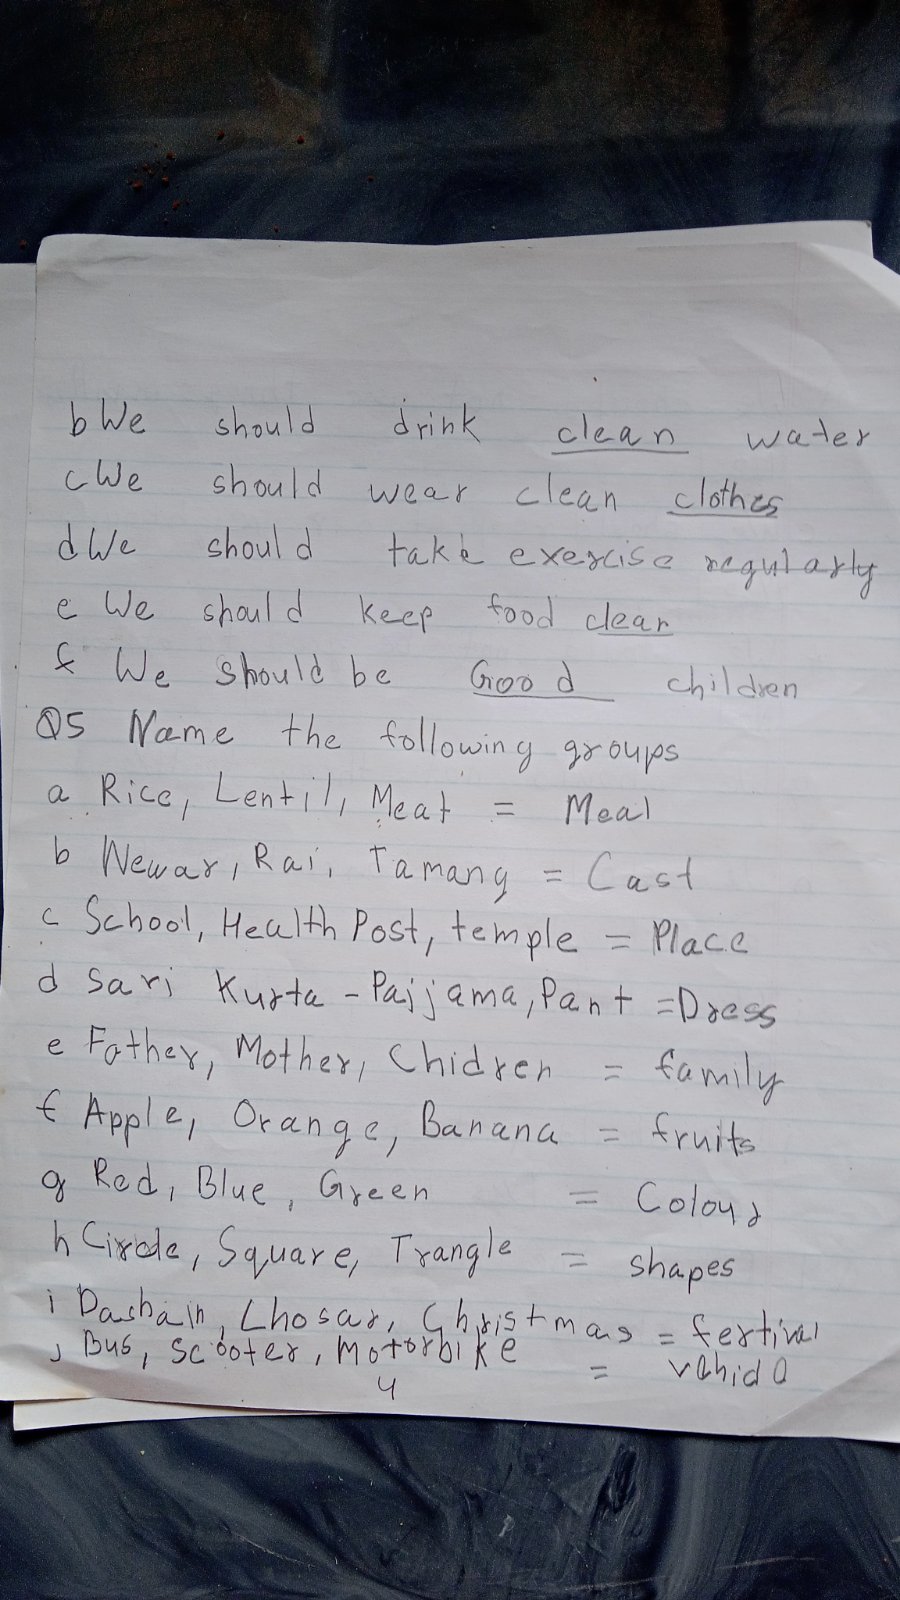 b We should drink clean water
c We should wear clean clothes
d We should take exercise regularly
e We should keep food clean
f We should be Good children
Q5 Name the following groups
a Rice, Lentil, Meat = Meal
b Newar, Rai, Tamang = Cast
c School, Health Post, temple = Place
d Sari Kurta - Paijama, Pant = Dress
e Father, Mother, Chidren = family
f Apple, Orange, Banana = fruits
g Red, Blue, Green = Colour
h Circle, Square, Trangle = shapes
i Dashain, Lhosar, Christmas = fertival
j Bus, Scooter, Motorbike =
4